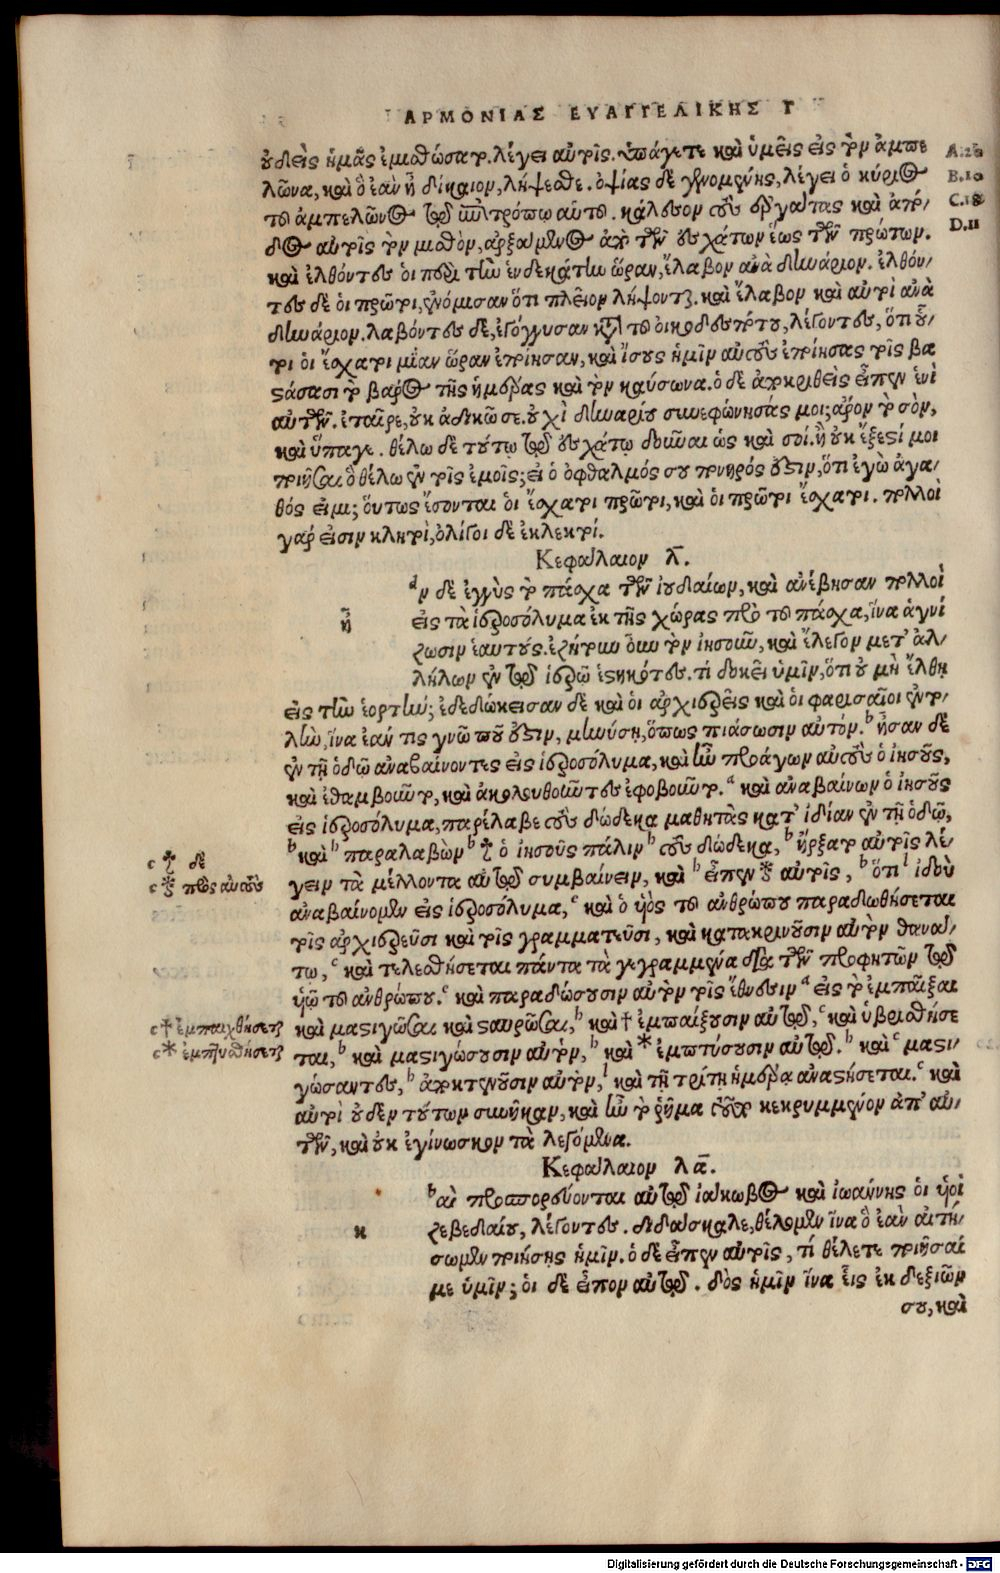 ΑΡΜΟΝΙΑΣ ΕΥΑΓΓΕΛΙΚΗΣ Γ
οὐδεὶς ἡμᾶς ἐμισθώσατο. λέγει αὐτοῖς. ὑπάγετε καὶ ὑμεῖς εἰς τὸν ἀμπε
λῶνα, καὶ ὃ ἐὰν ᾖ δίκαιον, λήψεσθε. ὀψίας δὲ γενομένης, λέγει ὁ κύριος
τοῦ ἀμπελῶνος τῷ ἐπιτρόπῳ αὐτοῦ. κάλεσον τοὺς ἐργάτας καὶ ἀπό/
δος αὐτοῖς τὸν μισθὸν, ἀρξάμενος ἀπὸ τῶν ἐσχάτων ἕως τῶν πρώτων.
καὶ ἐλθόντες οἱ περὶ τὴν ἑνδεκάτην ὥραν, ἔλαβον ἀνὰ δηνάριον. ἐλθόν/
τες δὲ οἱ πρῶτοι, ἐνόμισαν ὅτι πλεῖον λήψονται. καὶ ἔλαβον καὶ αὐτοὶ ἀνὰ
δηνάριον. λαβόντες δὲ, ἐγόγγυσαν κατὰ τοῦ οἰκοδεσπότου, λέγοντες, ὅτι οὗ/
τοι οἱ ἔσχατοι μίαν ὥραν ἐποίησαν, καὶ ἴσους ἡμῖν αὐτοὺς ἐποίησας τοῖς βα
στάσασι τὸ βάρος τῆς ἡμέρας καὶ τὸν καύσωνα. ὁ δὲ ἀποκριθεὶς εἶπεν ἑνὶ
αὐτῶν. ἑταῖρε, οὐκ ἀδικῶ σε. οὐχὶ δηναρίου συνεφώνησάς μοι; ἆρον τὸ σὸν,
καὶ ὕπαγε. θέλω δὲ τούτῳ τῷ ἐσχάτῳ δοῦναι ὡς καὶ σοί. ἢ οὐκ ἔξεστί μοι
ποιῆσαι ὃ θέλω ἐν τοῖς ἐμοῖς; εἰ ὁ ὀφθαλμός σου πονηρός ἐστιν, ὅτι ἐγὼ ἀγα/
θός εἰμι; οὕτως ἔσονται οἱ ἔσχατοι πρῶτοι, καὶ οἱ πρῶτοι ἔσχατοι. πολλοὶ
γάρ εἰσιν κλητοὶ, ὀλίγοι δὲ ἐκλεκτοί.
A.20
B.10
C.18
D.11
Κεφάλαιον λ̄.
ῆ
ᵈν δὲ ἐγγὺς τὸ πάσχα τῶν ἰουδαίων, καὶ ἀνέβησαν πολλοὶ
εἰς τὰ ἱεροσόλυμα ἐκ τῆς χώρας πρὸ τοῦ πάσχα, ἵνα ἁγνί
ζωσιν ἑαυτούς. ἐζήτουν οὖν τὸν ἰησοῦν, καὶ ἔλεγον μετ' ἀλ/
λήλων ἐν τῷ ἱερῷ ἑστηκότες. τί δοκεῖ ὑμῖν, ὅτι οὐ μὴ ἔλθῃ
εἰς τὴν ἑορτήν; ἐδεδώκεισαν δὲ καὶ οἱ ἀρχιερεῖς καὶ οἱ φαρισαῖοι ἐντο/
λὴν, ἵνα ἐάν τις γνῷ ποῦ ἐστιν, μηνύσῃ, ὅπως πιάσωσιν αὐτόν. ᵇ ἦσαν δὲ
ἐν τῇ ὁδῷ ἀναβαίνοντες εἰς ἱεροσόλυμα, καὶ ἦν προάγων αὐτοὺς ὁ ἰησοῦς,
καὶ ἐθαμβοῦντο, καὶ ἀκολουθοῦντες ἐφοβοῦντο. ᵃ καὶ ἀναβαίνων ὁ ἰησοῦς
εἰς ἱεροσόλυμα, παρέλαβε τοὺς δώδεκα μαθητὰς κατ' ἰδίαν ἐν τῇ ὁδῷ,
ᵇ καὶ ᵇ παραλαβὼν ᵇ ☨ ὁ ἰησοῦς πάλιν ᵇ τοὺς δώδεκα, ᵇ ἤρξατο αὐτοῖς λέ/
γειν τὰ μέλλοντα αὐτῷ συμβαίνειν, καὶ ᵇ εἶπεν ⁑ αὐτοῖς, ᵇ ὅτι ˡ ἰδοὺ
ἀναβαίνομεν εἰς ἱεροσόλυμα, ᶜ καὶ ὁ υἱὸς τοῦ ἀνθρώπου παραδωθήσεται
τοῖς ἀρχιερεῦσι καὶ τοῖς γραμματεῦσι, καὶ κατακρινοῦσιν αὐτὸν θανά/
τῳ, ᶜ καὶ τελεσθήσεται πάντα τὰ γεγραμμένα διὰ τῶν προφητῶν τῷ
υἱῷ τοῦ ἀνθρώπου. ᶜ καὶ παραδώσουσιν αὐτὸν τοῖς ἔθνεσιν ᵃ εἰς τὸ ἐμπαῖξαι
καὶ μαστιγῶσαι καὶ σταυρῶσαι, ᵇ καὶ † ἐμπαίξουσιν αὐτῷ, ᶜ καὶ ὑβρισθήσε
ται, ᵇ καὶ μαστιγώσουσιν αὐτὸν, ᵇ καὶ * ἐμπτύσουσιν αὐτῷ. ᵇ καὶ ᶜ μαστι/
γώσαντες, ᵇ ἀποκτενοῦσιν αὐτὸν, ˡ καὶ τῇ τρίτῃ ἡμέρᾳ ἀναστήσεται. ᶜ καὶ
αὐτοὶ οὐδὲν τούτων συνῆκαν, καὶ ἦν τὸ ῥῆμα τοῦτο κεκρυμμένον ἀπ' αὐ/
τῶν, καὶ οὐκ ἐγίνωσκον τὰ λεγόμενα.
c ☨ δὲ
c ⁑ πρὸς αὐτοὺς
c † ἐμπαιχθήσεται
c * ἐμπτυσθήσεται
Κεφάλαιον λᾱ.
κ
ᵇαὶ προσπορεύονται αὐτῷ ἰάκωβος καὶ ἰωάννης οἱ υἱοὶ
ζεβεδαίου, λέγοντες. διδάσκαλε, θέλομεν ἵνα ὃ ἐὰν αἰτή/
σωμεν ποιήσῃς ἡμῖν. ὁ δὲ εἶπεν αὐτοῖς, τί θέλετε ποιῆσαί
με ὑμῖν; οἱ δὲ εἶπον αὐτῷ. δὸς ἡμῖν ἵνα εἷς ἐκ δεξιῶν
σου, καὶ
Digitalisierung gefördert durch die Deutsche Forschungsgemeinschaft - DFG